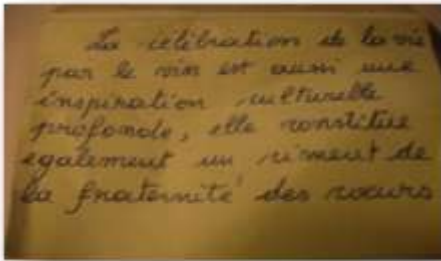 La célébration de la vie
par le vin est aussi une
inspiration culturelle
profonde, elle constitue
egalement un ciment de
la fraternité des cœurs